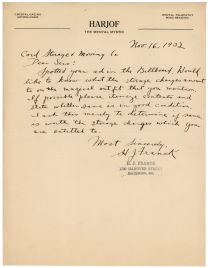 CRYSTAL GAZING
ASTROLOGIST
HARJOF
THE MENTAL MYSTIC
MENTAL TELEPATHY
MIND READING
Nov. 16, 1932
Cord Storage & Moving Co
Dear Sirs:
Spotted your ad in the Billboard. Would
like to know what the storage charges amount
to on the magical outfit that you mention.
If possible please itemize contents and
state whether same is in good condition.
I ask this merely to determine if same
is worth the storage charges which you
are entitled to.
Most Sincerely,
H. J. Franck
H. J. FRANCK
HANOVER STREET
BALTIMORE, MD.